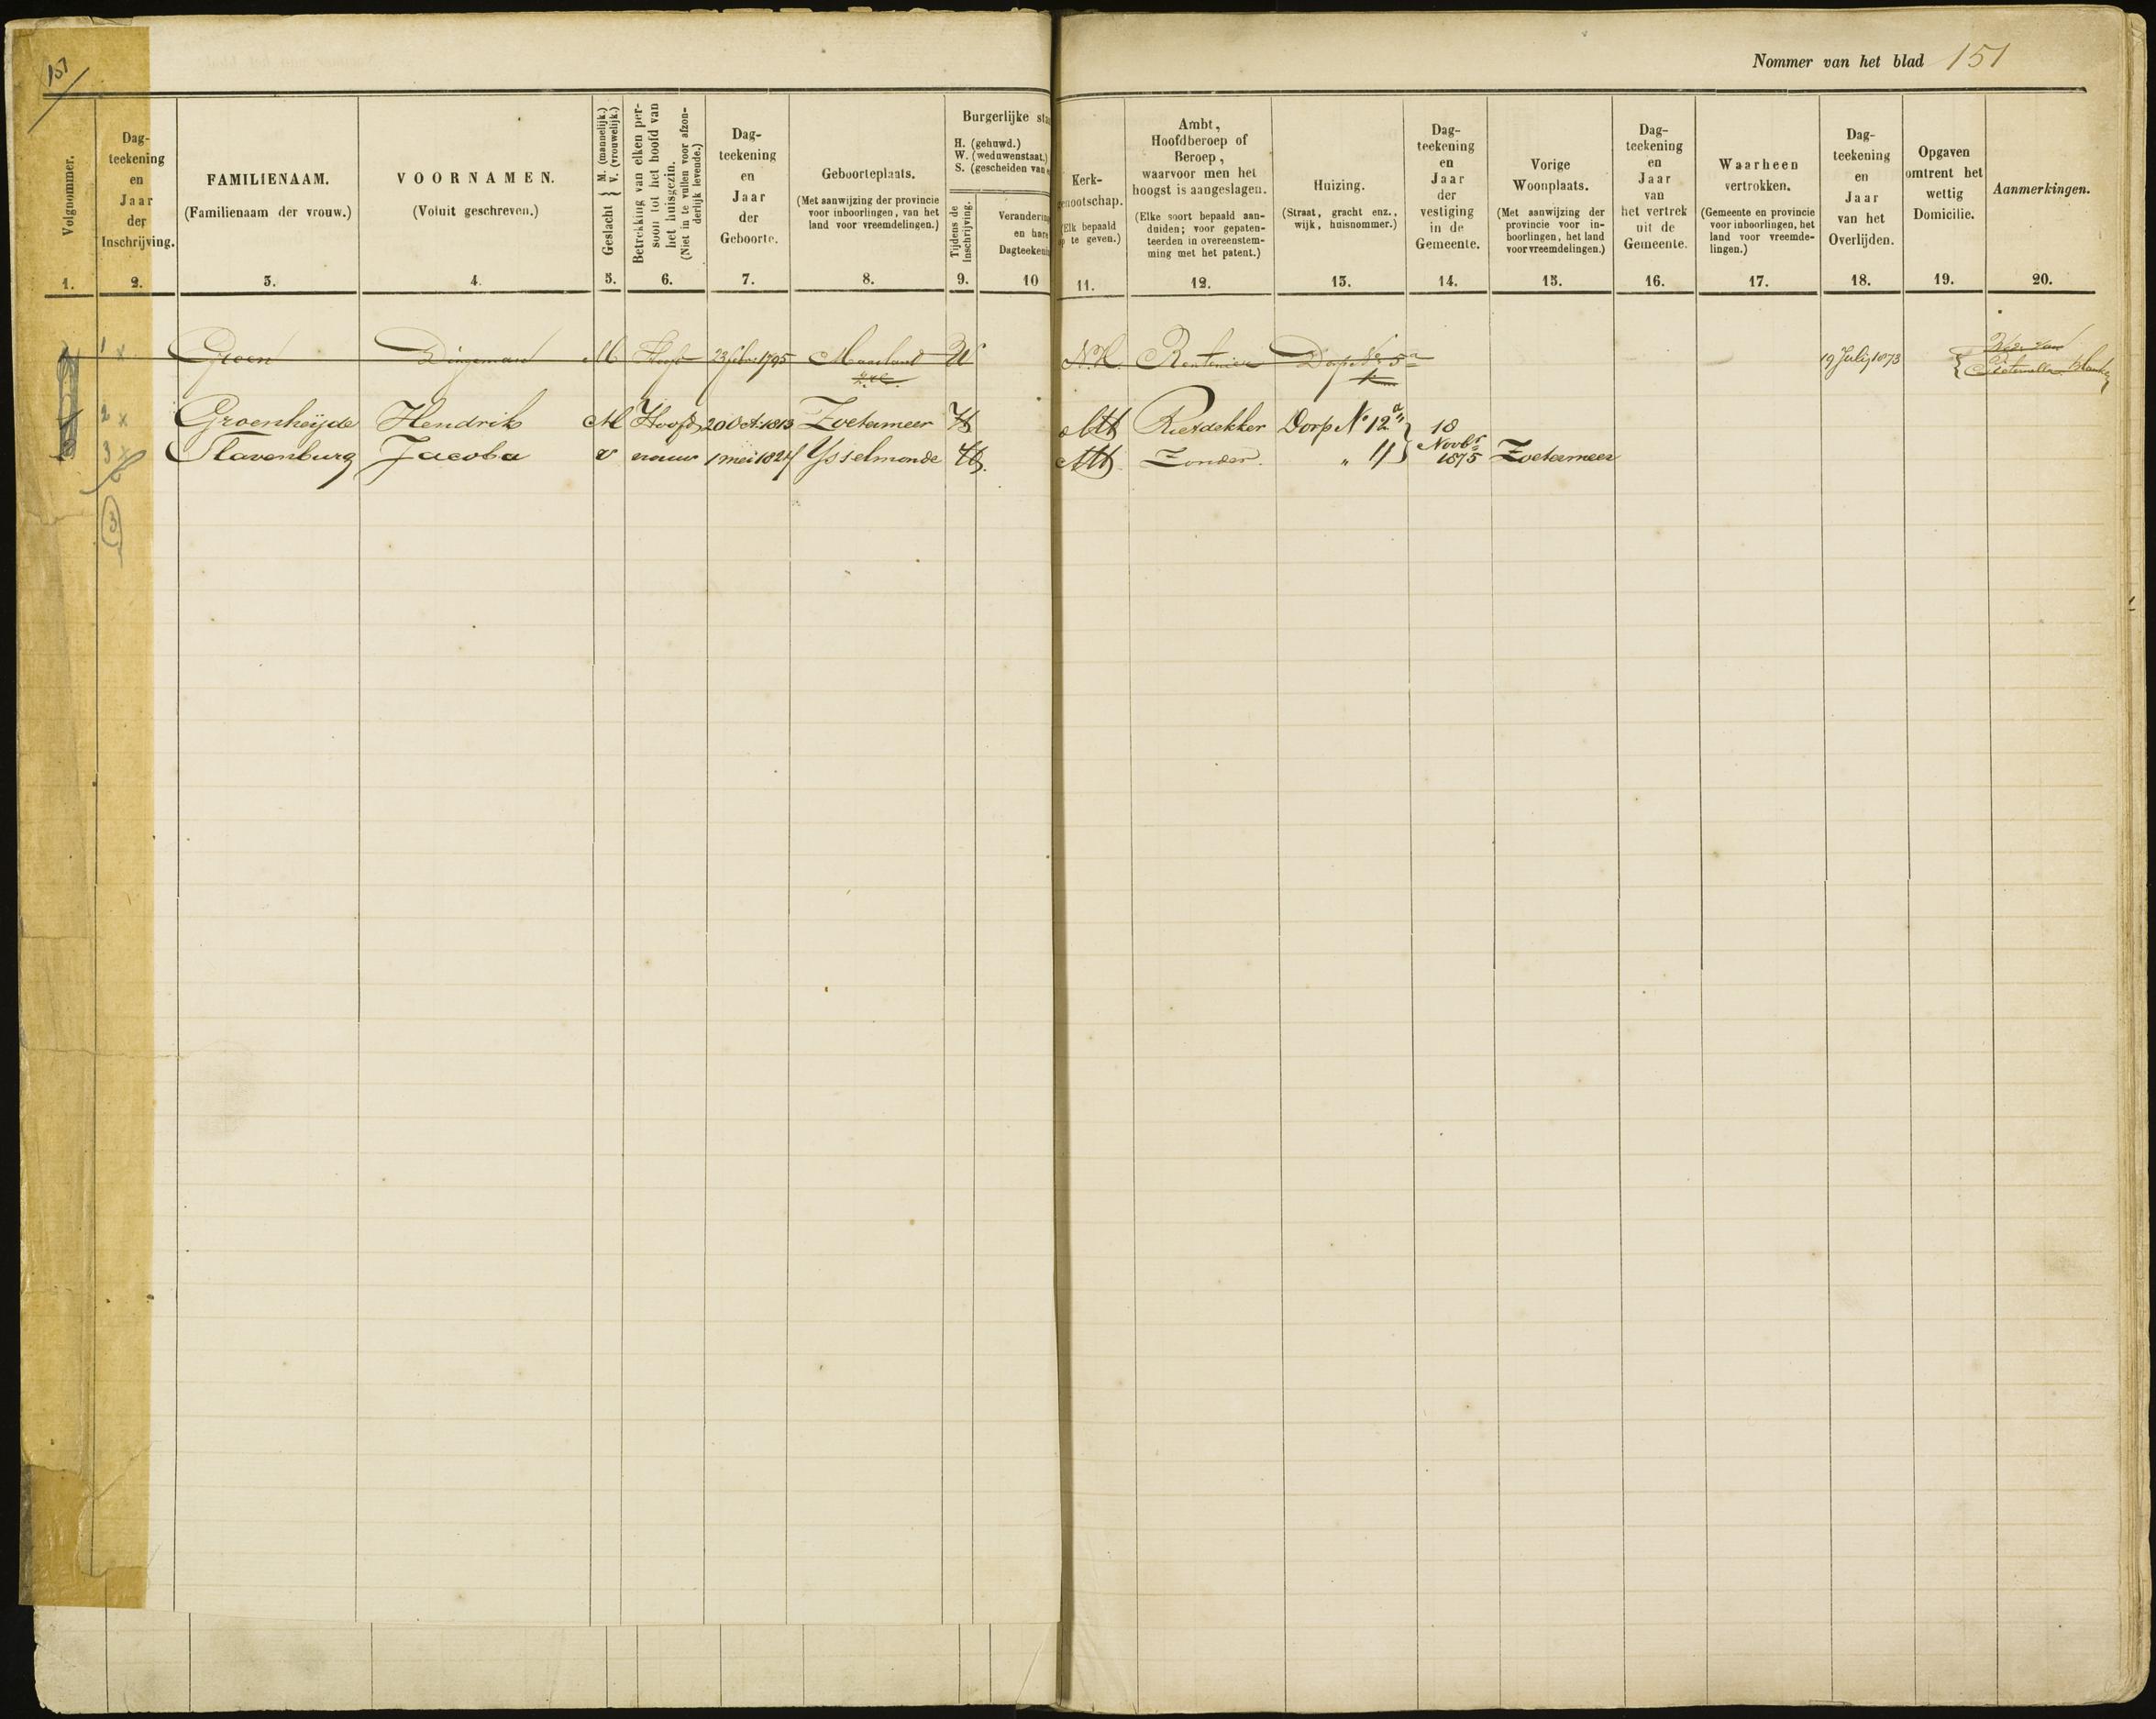 151
Nommer van het blad 151
Volgnommer.
1.
Dag-
teekening
en
Jaar
der
Inschrijving.
2.
FAMILIENAAM.
(Familienaam der vrouw.)
3.
VOORNAMEN.
(Voluit geschreven.)
4.
Geslacht { M. (mannelijk.)
V. (vrouwelijk.)
5.
Betrekking van elken per-
soon tot het hoofd van
het huisgezin.
(Niet in te vullen voor afzon-
derlijk levende.)
6.
Dag-
teekening
en
Jaar
der
Geboorte.
7.
Geboorteplaats.
(Met aanwijzing der provincie
voor inboorlingen, van het
land voor vreemdelingen.)
8.
Burgerlijke sta
H. (gehuwd.)
W. (weduwenstaat.)
S. (gescheiden van
Tijdens de
inschrijving.
9.
Verandering
en hare
Dagteekenin
10
Kerk-
genootschap.
(Elk bepaald
op te geven.)
11.
Ambt,
Hoofdberoep of
Beroep,
waarvoor men het
hoogst is aangeslagen.
(Elke soort bepaald aan-
duiden; voor gepaten-
teerden in overeenstem-
ming met het patent.)
12.
Huizing.
(Straat, gracht enz.,
wijk, huisnommer.)
13.
Dag-
teekening
en
Jaar
der
vestiging
in de
Gemeente.
14.
Vorige
Woonplaats.
(Met aanwijzing der
provincie voor in-
boorlingen, het land
voor vreemdelingen.)
15.
Dag-
teekening
en
Jaar
van
het vertrek
uit de
Gemeente.
16.
Waarheen
vertrokken.
(Gemeente en provincie
voor inboorlingen, het
land voor vreemde-
lingen.)
17.
Dag-
teekening
en
Jaar
van het
Overlijden.
18.
Opgaven
omtrent het
wettig
Domicilie.
19.
Aanmerkingen.
20.
1 x Groen Dingeman M Hoofd 23 febr 1795 Maasland W N.H. Rentenier Dorp No 5a 19 Julij 1873
2 x Groenheijde Hendrik M Hoofd 20 Oct 1813 Zoetermeer H NH Rietdekker Dorp No 12a 18
3 x Slavenburg Jacoba V vrouw 1 mei 1824 Ysselmonde H. NH Zonder. " " Novbr 1875 Zoetermeer
3